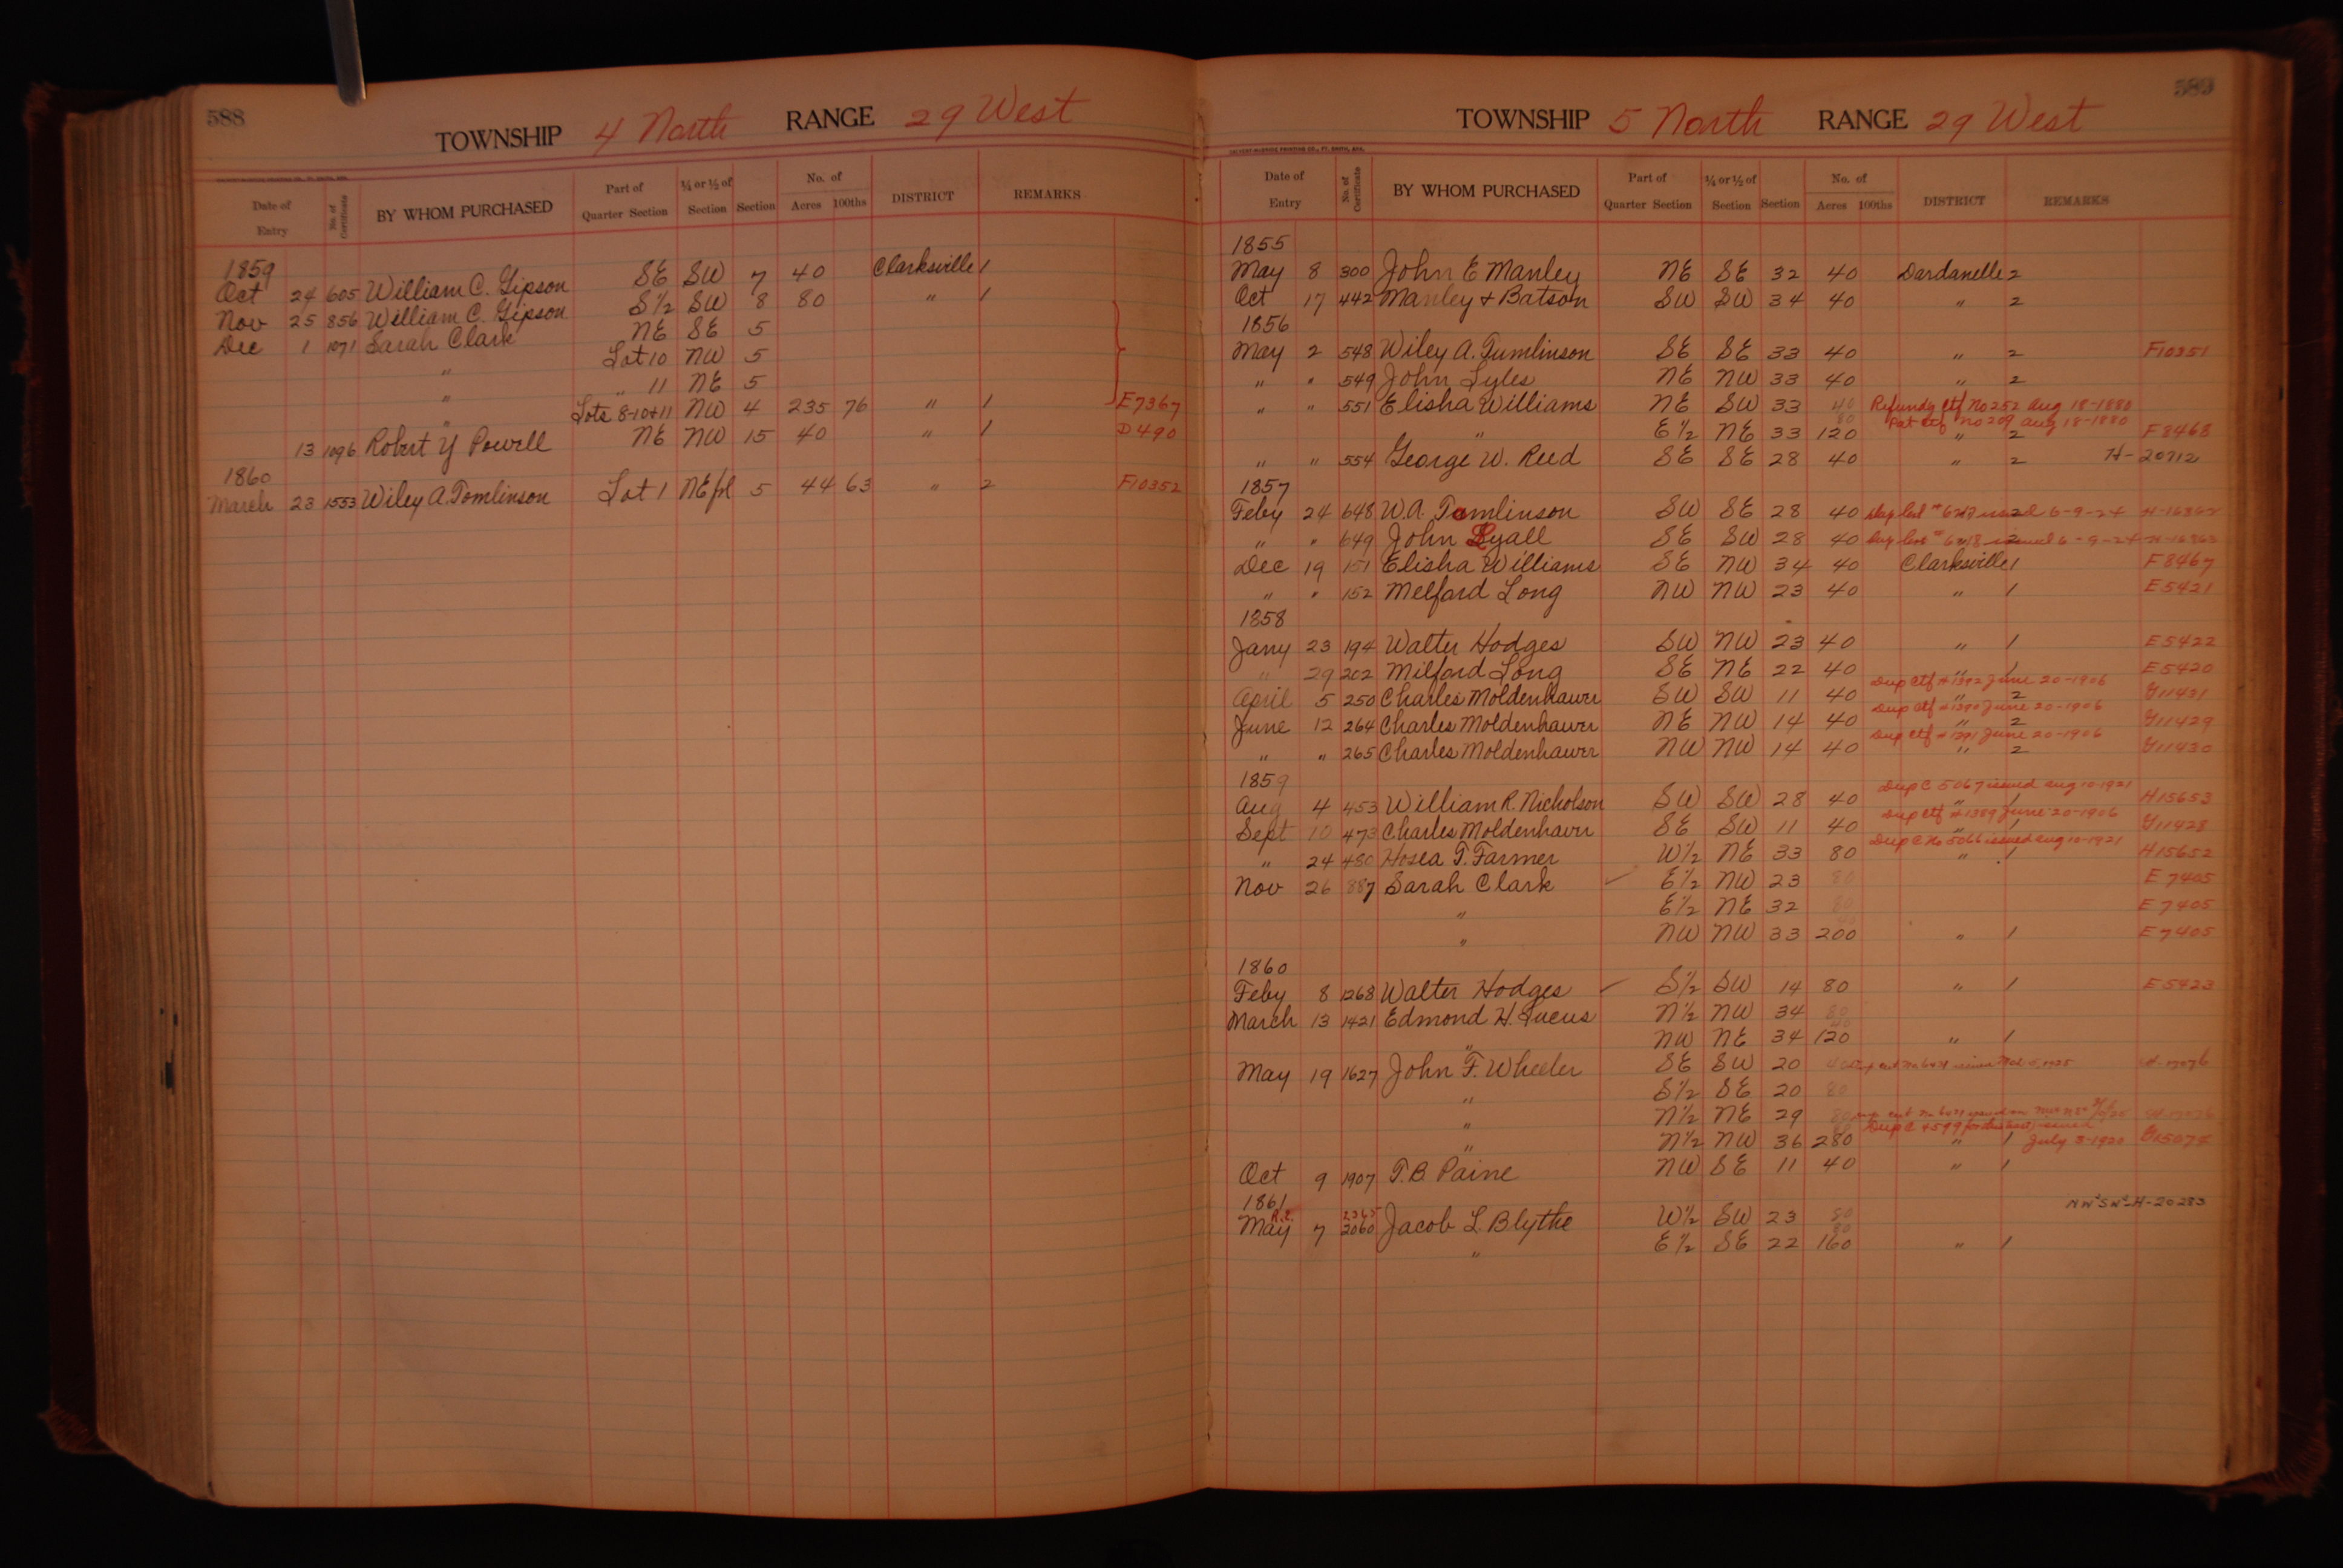 588
TOWNSHIP 4 North RANGE 29 West
Date of Entry No. of Certificate BY WHOM PURCHASED Part of Quarter Section ¼ or ½ of Section Section No. of Acres 100ths DISTRICT REMARKS
1859
Oct 24 605 William C. Gipson SE SW 7 40 Clarksville 1
Nov 25 856 William C. Gipson S½ SW 8 80 " 1
Dec 1 1071 Sarah Clark NE SE 5
" Lot 10 NW 5
" " 11 NE 5
" Lots 8-10+11 NW 4 235 76 " 1 E7367
13 1096 Robert Y Powell NE NW 15 40 " 1 D490
1860
March 23 1553 Wiley A. Tomlinson Lot 1 NE frl 5 44 63 " 2 F10352
589
TOWNSHIP 5 North RANGE 29 West
CALVERT-McBRIDE PRINTING CO., FT. SMITH, ARK.
Date of Entry No. of Certificate BY WHOM PURCHASED Part of Quarter Section ¼ or ½ of Section Section No. of Acres 100ths DISTRICT REMARKS
1855
May 8 300 John E Manley NE SE 32 40 Dardanelle 2
Oct 17 442 Manley + Batson SW SW 34 40 " 2
1856
May 2 548 Wiley A. Tumlinson SE SE 33 40 " 2 F10351
" " 549 John Lyles NE NW 33 40 " 2
" " 551 Elisha Williams NE SW 33 40 Refundg Ctf No 252 Aug 18-1880
Pat Ctf No 209 Aug 18-1880
" E½ NE 33 80 120 " 2 F8468
" " 554 George W. Reed SE SE 28 40 " 2 H-20712
1857
Feby 24 648 W.A. Tomlinson SW SE 28 40 issued 6-9-24
" " 649 John Ryall SE SW 28 40 issued 6-9-24
Dec 19 151 Elisha Williams SE NW 34 40 Clarksville 1 F8467
" " 152 Melford Long NW NW 23 40 " 1 E5421
1858
Jany 23 194 Walter Hodges SW NW 23 40 " 1 E5422
" 29 202 Milford Long SE NE 22 40 " 1 E5420
Dup Ctf #1392 June 20-1906
April 5 250 Charles Moldenhawer SW SW 11 40 " 2 G11431
Dup Ctf #1390 June 20-1906
June 12 264 Charles Moldenhawer NE NW 14 40 " 2 G11429
Dup Ctf #1391 June 20-1906
" " 265 Charles Moldenhawer NW NW 14 40 " 2 G11430
1859
Dup C 5067 issued Aug 10-1921
Aug 4 453 William R. Nicholson SW SW 28 40 " 1 H15653
Dup Ctf #1389 June 20-1906
Sept 10 473 Charles Moldenhavr SE SW 11 40 " 1 G11428
Dup C No 5066 issued Aug 10-1921
" 24 480 Hosea T. Farmer W½ NE 33 80 " 1 H15652
Nov 26 887 Sarah Clark E½ NW 23 80 E 7405
" E½ NE 32 80 E 7405
" NW NW 33 40 200 " 1 E 7405
1860
Feby 8 1268 Walter Hodges S½ SW 14 80 " 1 E5423
March 13 1421 Edmond H. Lucus N½ NW 34 80
" NW NE 34 40 120 " 1
May 19 1627 John F. Wheeler SE SW 20 40
" S½ SE 20 80
" N½ NE 29 80
Dup C 4599 issued
" N½ NW 36 280 " 1 July 8-1920 G15074
Oct 9 1907 T.B. Paine NW SE 11 40 " 1
1861
R.E. 2365 NW SW H-20283
May 7 2060 Jacob L. Blythe W½ SW 23 80
" E½ SE 22 80 160 " 1